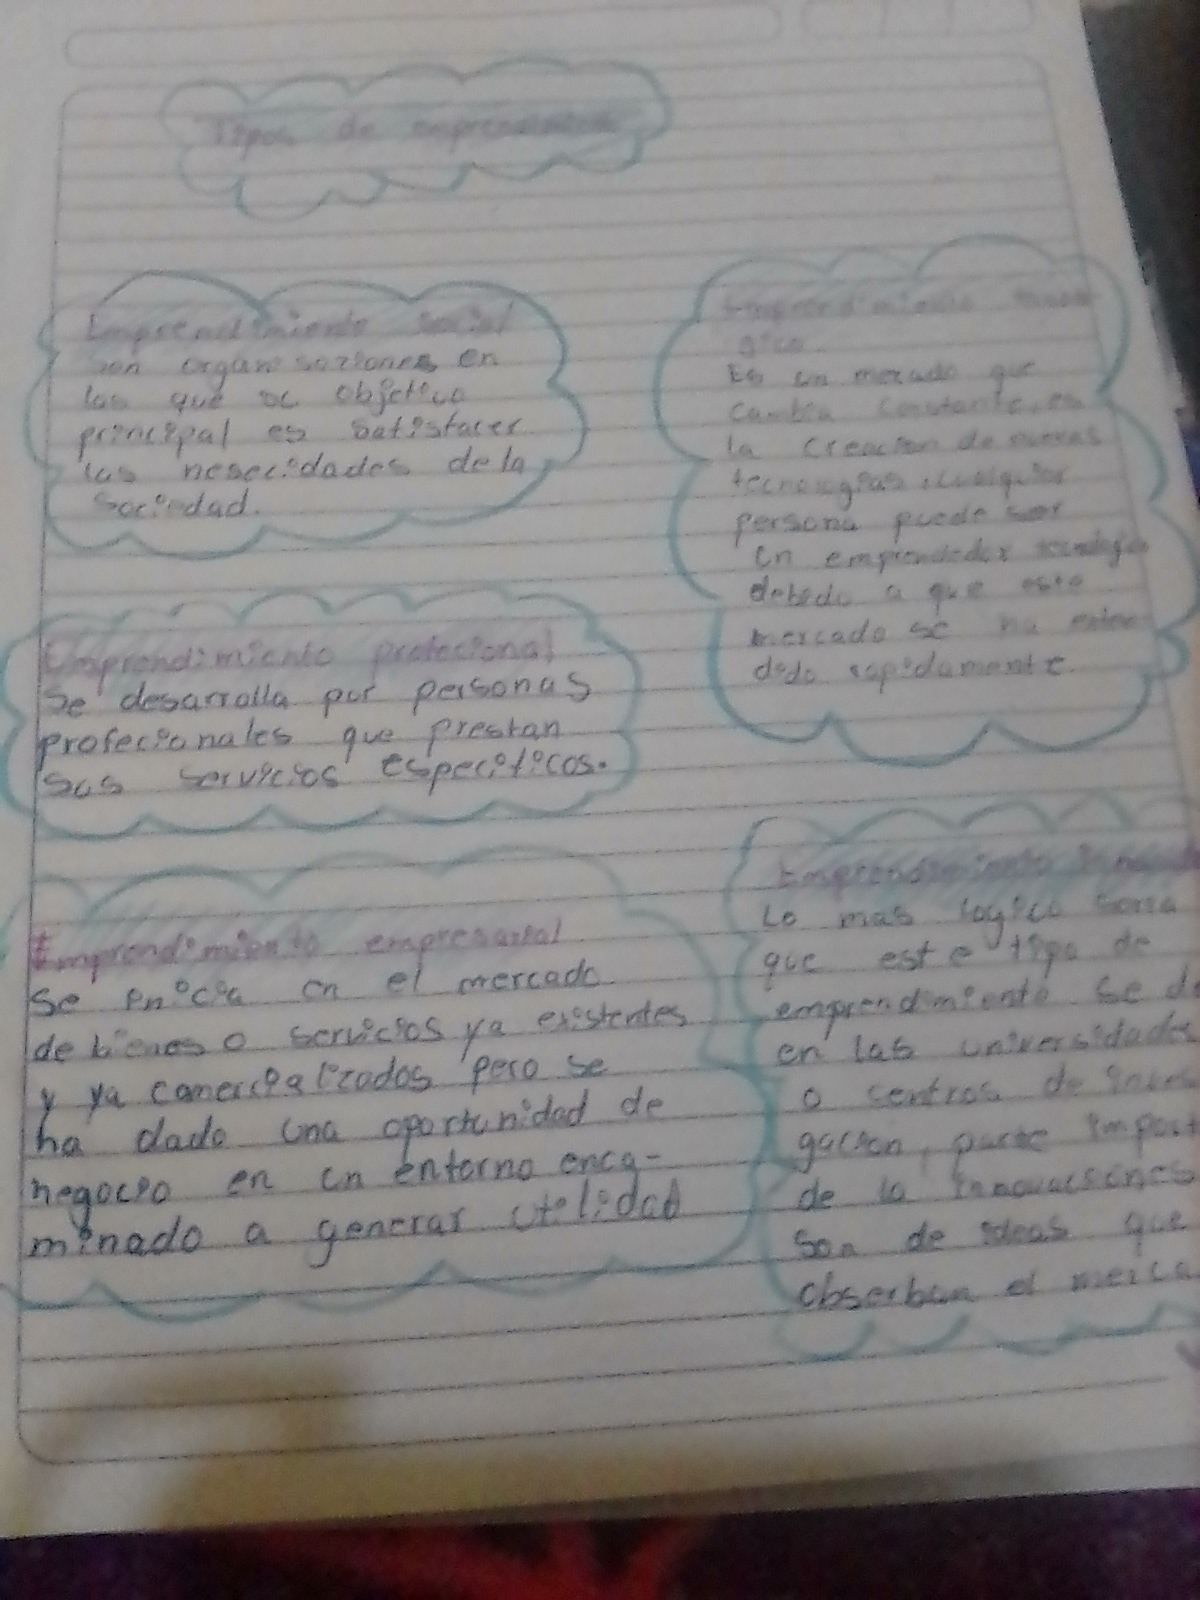 Tipos de
Emprendimiento social
son organisaziones en
las que su objetivo
principal es satisfacer
las nesecidades de la
sociedad.
Emprendimiento
gico
Es un mercado que
cambia constante, es
la creacion de nuevas
tecnologias, cualquier
persona puede ser
un emprendedor
debido a que este
mercado se ha
dido rapidamente.
Emprendimiento profecional
Se desarrolla por personas
profecionales que prestan
sus servicios especificos.
Emprendimiento empresarial
Se inicia en el mercado
de bienes o servicios ya existentes
y ya comercializados pero se
ha dado una oportunidad de
negocio en un entorno enca-
minado a generar utilidad
Emprendimiento
Lo mas logico seria
que este tipo de
emprendimiento se de
en las universidades
o centros de
gacion, parte import
de la innovaciones
son de ideas que
obserban el merca